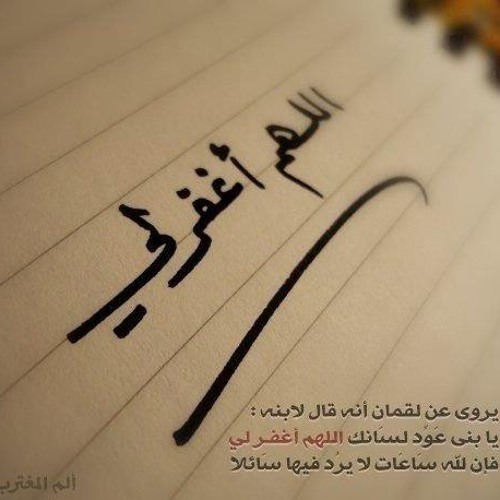 اللهم أغفر لي
يروى عن لقمان أنه قال لابنه :
يا بنى عَوِّد لسَانك اللهم أغفـر لي
فإن لله ساعَات لا يرُد فيها سَائلا
ألم المغترب